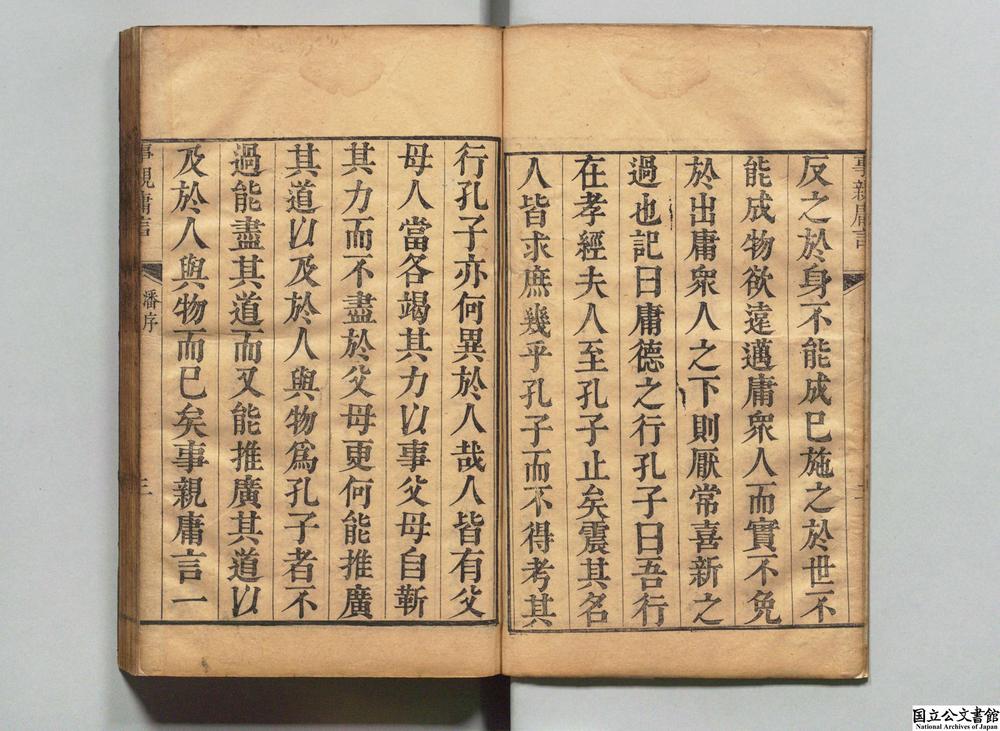 事親庸言
反之於身不能成巳施之於世不
能成物欲遠邁庸衆人而實不免
於出庸衆人之下則厭常喜新之
過也記曰庸德之行孔子曰吾行
在孝經夫人至孔子止矣震其名
人皆求庶幾乎孔子而不得考其
行孔子亦何異於人哉人皆有父
母人當各竭其力以事父母自靳
其力而不盡於父母更何能推廣
其道以及於人與物爲孔子者不
過能盡其道而又能推廣其道以
及於人與物而巳矣事親庸言一
事親庸言
潘序
三
国立公文書館
National Archives of Japan